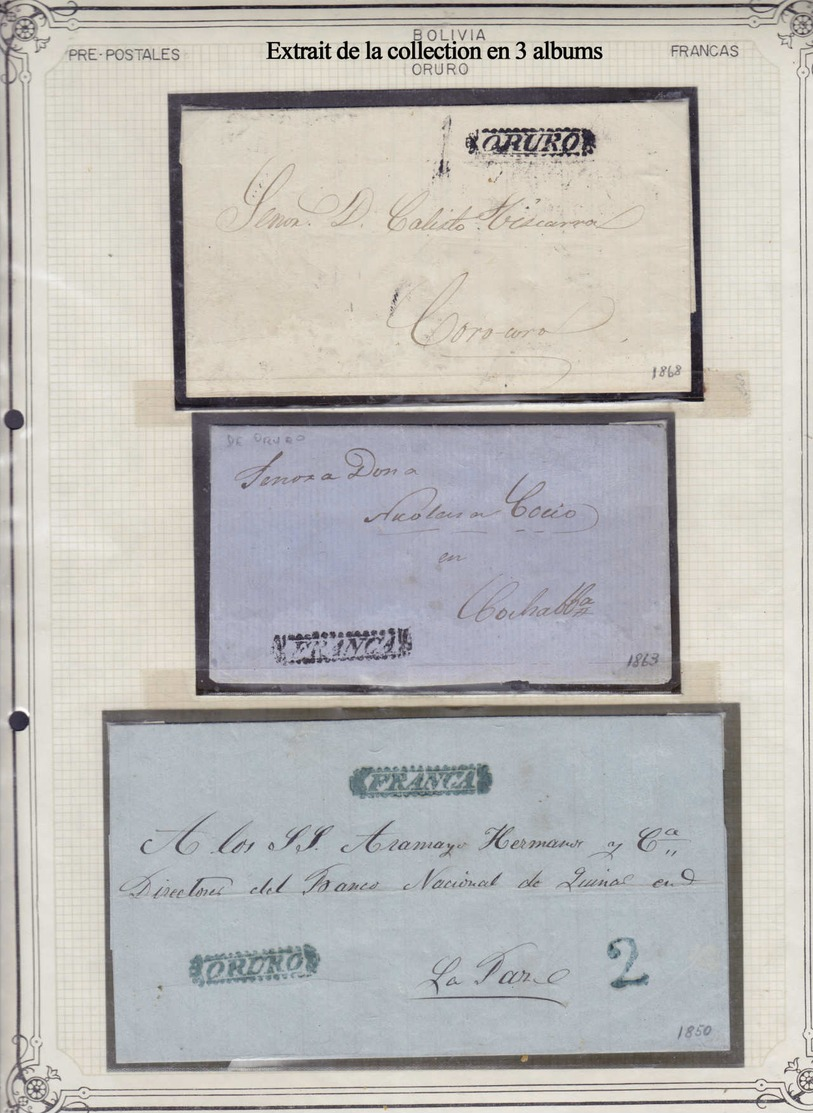 BOLIVIA
PRE-POSTALES
Extrait de la collection en 3 albums
FRANCAS
ORURO
1
ORURO
Señor D. Calisto Viscarra
Corocoro
1868
DE ORURO
Senora Dona
Nicolasa Cocio
en
Cochabba
FRANCA
1863
FRANCA
A los SS. Aramayo Hermanos y Ca
Directores del Banco Nacional de Quinas en
ORURO
La Paz
2
1850